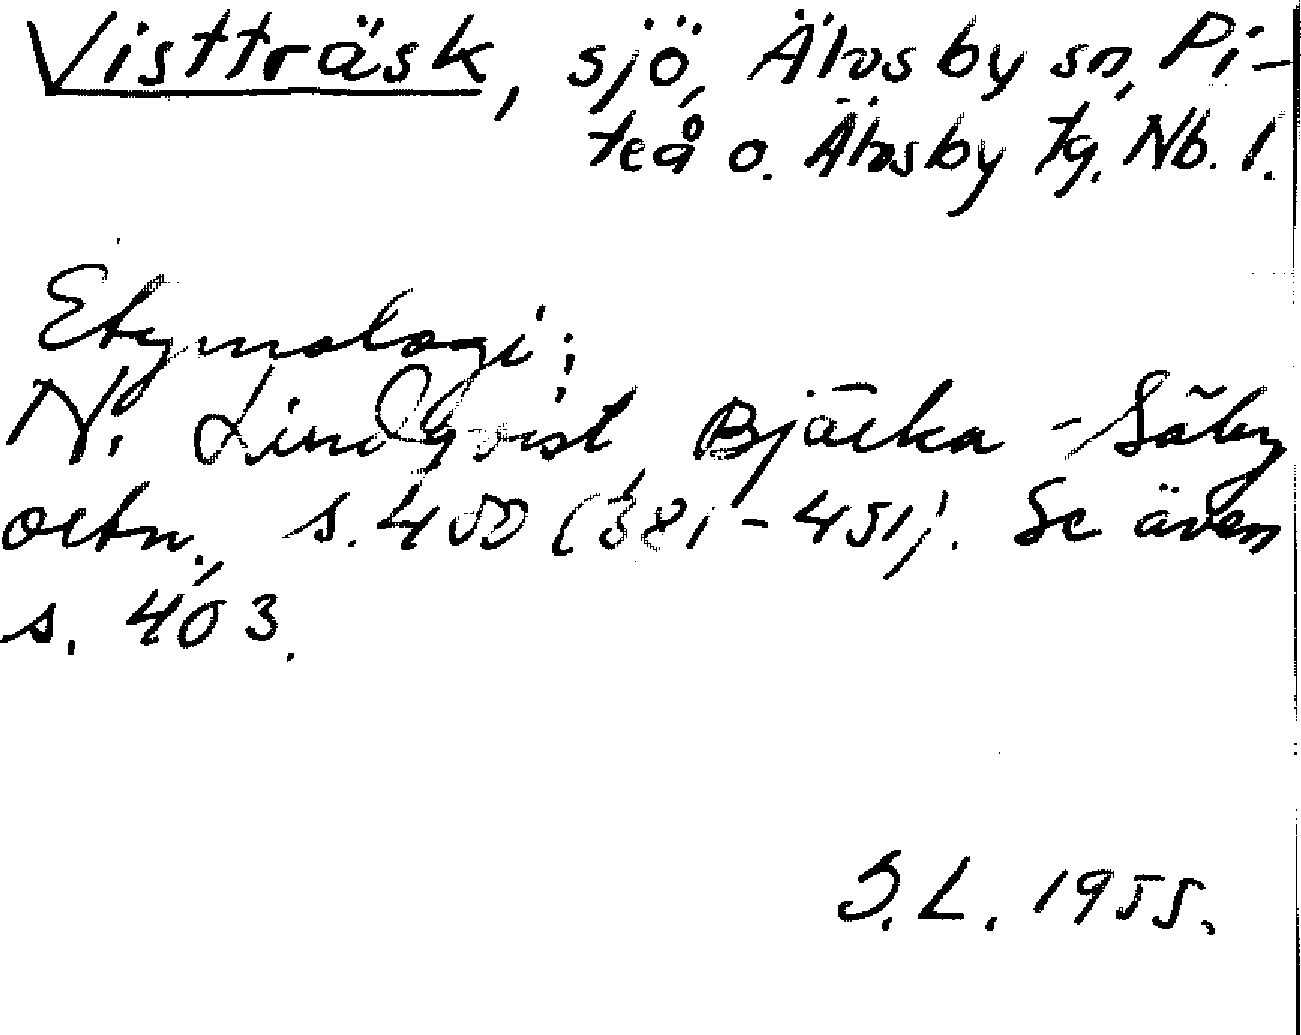 Vistträsk, sjö, Älvsby sn, Pi-
teå o. Älvsby tg. Nb. l.
Etymologi:
N. Lindqvist, Bjärka-Säby
ortn., s. 400 (381-451). Se även
s. 403.
S.L. 1955.